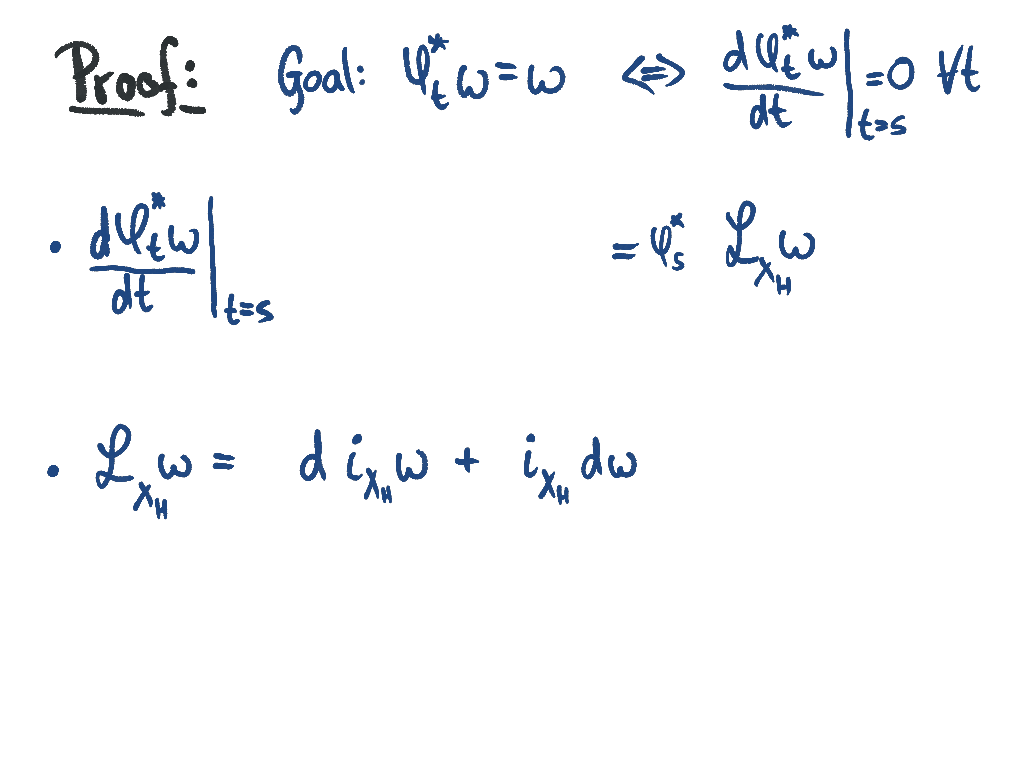 Proof: Goal: φ_t^* ω = ω ⇔ dφ_t^* ω / dt |_{t=s} = 0 ∀t
• dφ_t^* ω / dt |_{t=s} = φ_s^* ℒ_{X_H} ω
• ℒ_{X_H} ω = d i_{X_H} ω + i_{X_H} dω